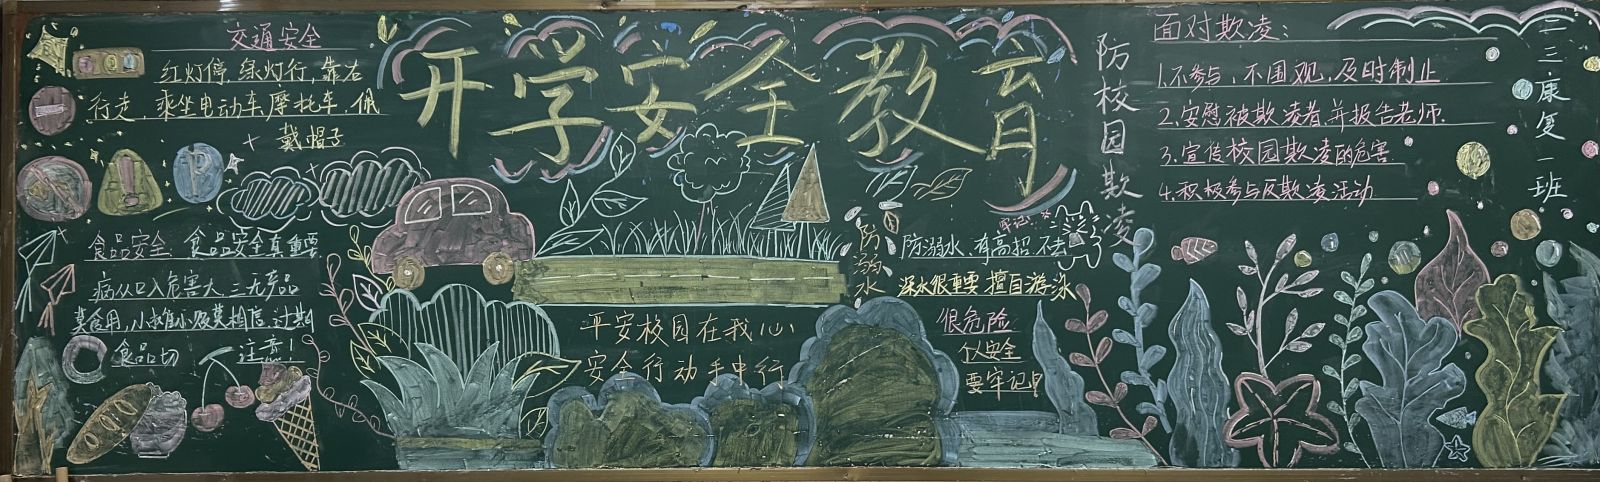 开学安全教育
交通安全
红灯停,绿灯行,靠右
行走,乘坐电动车,摩托车,佩
戴帽子
P
食品安全,食品安全真重要
病从口入危害大,三无产品
莫食用,小摊小贩莫相信,过期
食品切 注意!
平安校园在我心
安全行动手中行
防溺水
牢记:
防溺水,有高招,不去
深水很重要,擅自游泳
很危险
安全
要牢记
防校园欺凌
面对欺凌:
1.不参与、不围观,及时制止
2.安慰被欺凌者,并报告老师.
3.宣传校园欺凌的危害.
4.积极参与反欺凌活动
二三康复一班